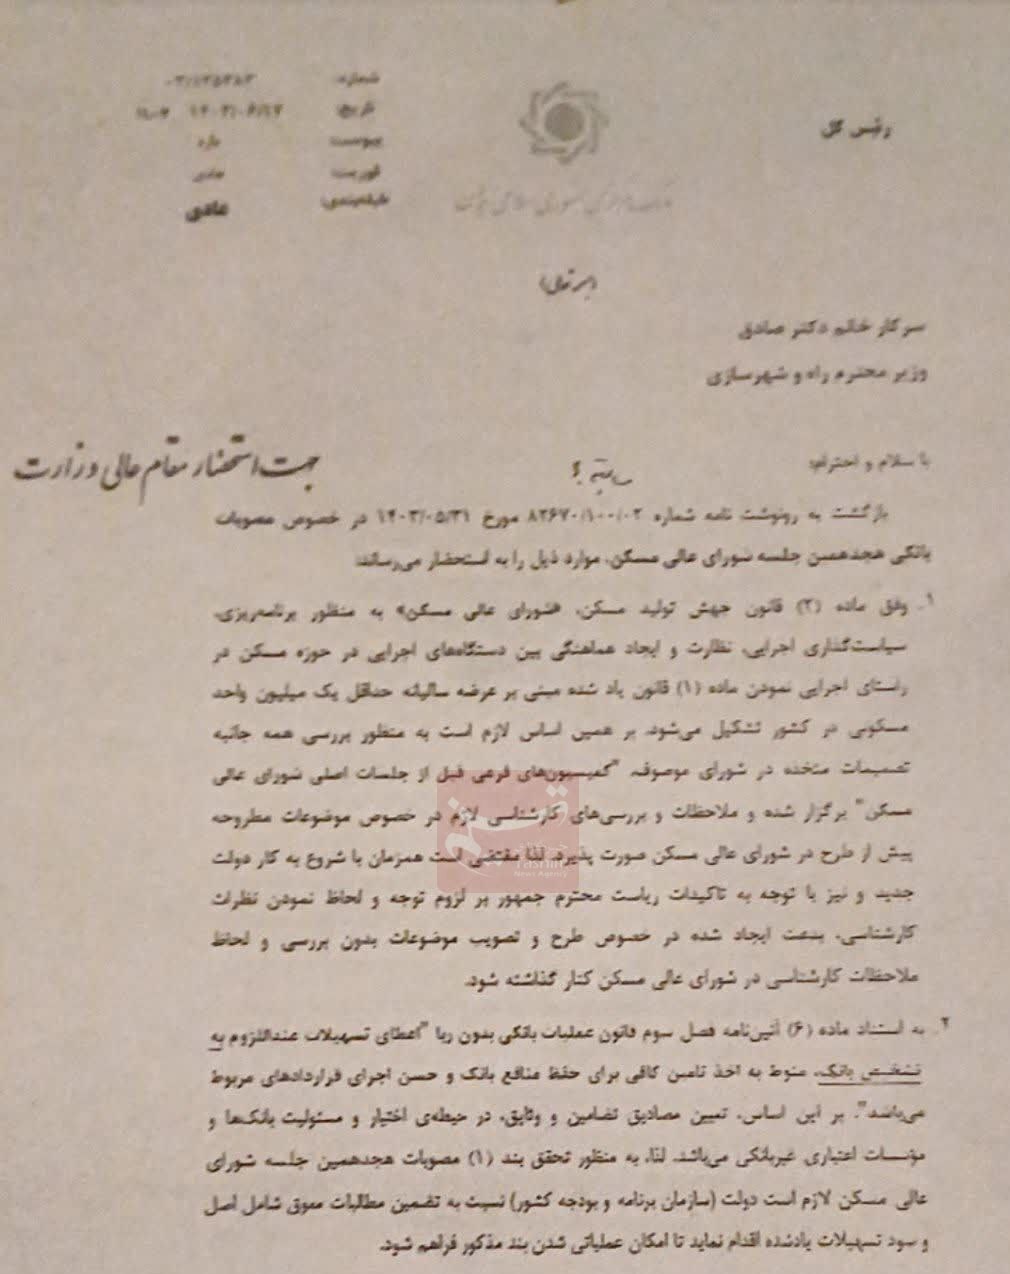 رئیس کل
شماره:
تاریخ: ۱۴۰۳/۰۶/۱۷
پیوست: دارد
فوریت: عادی
طبقه‌بندی: عادی
بانک مرکزی جمهوری اسلامی ایران
سرکار خانم دکتر صادق
وزیر محترم راه و شهرسازی
جهت استحضار مقام عالی وزارت
با سلام و احترام؛
بازگشت به رونوشت نامه شماره ۸۲۶۷۰/۱۰۰/۰۲ مورخ ۱۴۰۳/۰۵/۳۱ در خصوص مصوبات
بانکی هجدهمین جلسه شورای عالی مسکن، موارد ذیل را به استحضار می‌رساند:
۱. وفق ماده (۲) قانون جهش تولید مسکن، «شورای عالی مسکن» به منظور برنامه‌ریزی،
سیاست‌گذاری اجرایی، نظارت و ایجاد هماهنگی بین دستگاه‌های اجرایی در حوزه مسکن در
راستای اجرایی نمودن ماده (۱) قانون یاد شده مبنی بر عرضه سالیانه حداقل یک میلیون واحد
مسکونی در کشور تشکیل می‌شود. بر همین اساس لازم است به منظور بررسی همه جانبه
تصمیمات متخذه در شورای موصوف، "کمیسیون‌های فرعی قبل از جلسات اصلی شورای عالی
مسکن" برگزار شده و ملاحظات و بررسی‌های کارشناسی لازم در خصوص موضوعات مطروحه
پیش از طرح در شورای عالی مسکن صورت پذیرد. لذا مقتضی است همزمان با شروع به کار دولت
جدید و نیز با توجه به تاکیدات ریاست محترم جمهور بر لزوم توجه و لحاظ نمودن نظرات
کارشناسی، بدعت ایجاد شده در خصوص طرح و تصویب موضوعات بدون بررسی و لحاظ
ملاحظات کارشناسی در شورای عالی مسکن کنار گذاشته شود.
۲. به استناد ماده (۶) آئین‌نامه فصل سوم قانون عملیات بانکی بدون ربا "اعطای تسهیلات عنداللزوم به
تشخیص بانک، منوط به اخذ تامین کافی برای حفظ منافع بانک و حسن اجرای قراردادهای مربوط
می‌باشد". بر این اساس، تعیین مصادیق تضامین و وثایق، در حیطه‌ی اختیار و مسئولیت بانک‌ها و
مؤسسات اعتباری غیربانکی می‌باشد. لذا، به منظور تحقق بند (۱) مصوبات هجدهمین جلسه شورای
عالی مسکن لازم است دولت (سازمان برنامه و بودجه کشور) نسبت به تضمین مطالبات معوق شامل اصل
و سود تسهیلات یادشده اقدام نماید تا امکان عملیاتی شدن بند مذکور فراهم شود.